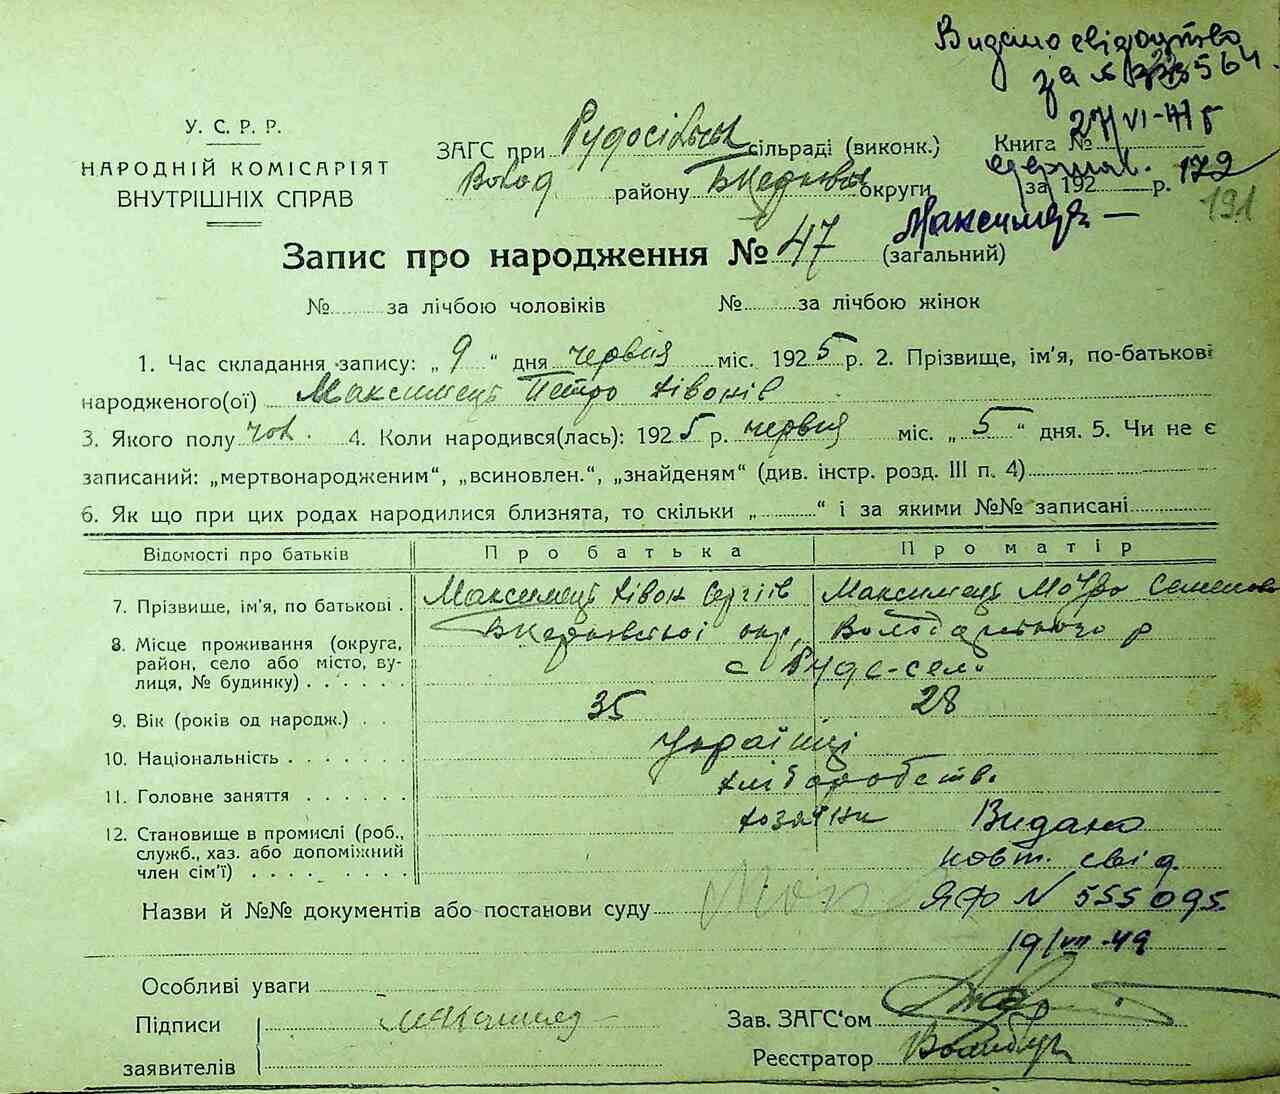 Видано свідоцтво
за №
27/VI-41 г
У. С. Р. Р.
НАРОДНІЙ КОМІСАРІЯТ
ВНУТРІШНІХ СПРАВ
ЗАГС при Рудосільськ сільраді (виконк.)
Волод району Б Церковськ округи
Книга №
за 192 р. 172
191
Максимець
Запис про народження № 47 (загальний)
№ за лічбою чоловіків № за лічбою жінок
1. Час складання запису: „ 9 “ дня червня міс. 1925 р. 2. Прізвище, ім'я, по-батькові
народженого(ої) Максимець Петро Лівонів
3. Якого полу чол. 4. Коли народився(лась): 1925 р. червня міс. „ 5 “ дня. 5. Чи не є
записаний: „мертвонародженим“, „всиновлен.“, „знайденям“ (див. інстр. розд. III п. 4)
6. Як що при цих родах народилися близнята, то скільки „ “ і за якими №№ записані
Відомості про батьків Про батька Про матір
7. Прізвище, ім'я, по батькові . Максимець Лівон Сергіїв Максимець Мотря Семенова
8. Місце проживання (округа, Б Церковської окр, Володарського р
район, село або місто, ву- с Руде-село
лиця, № будинку) . . . . . .
9. Вік (років од народж.) . . 35 28
10. Національність . . . . . . . Українці
11. Головне заняття . . . . . . хліборобств.
12. Становище в промислі (роб., хозяїни Видано
служб., хаз. або допоміжний повт. свід.
член сім'ї) . . . . . . . .
Назви й №№ документів або постанови суду ЯФ N 555095.
19/VII-49
Особливі уваги
Підписи
заявителів
Зав. ЗАГС'ом
Реєстратор